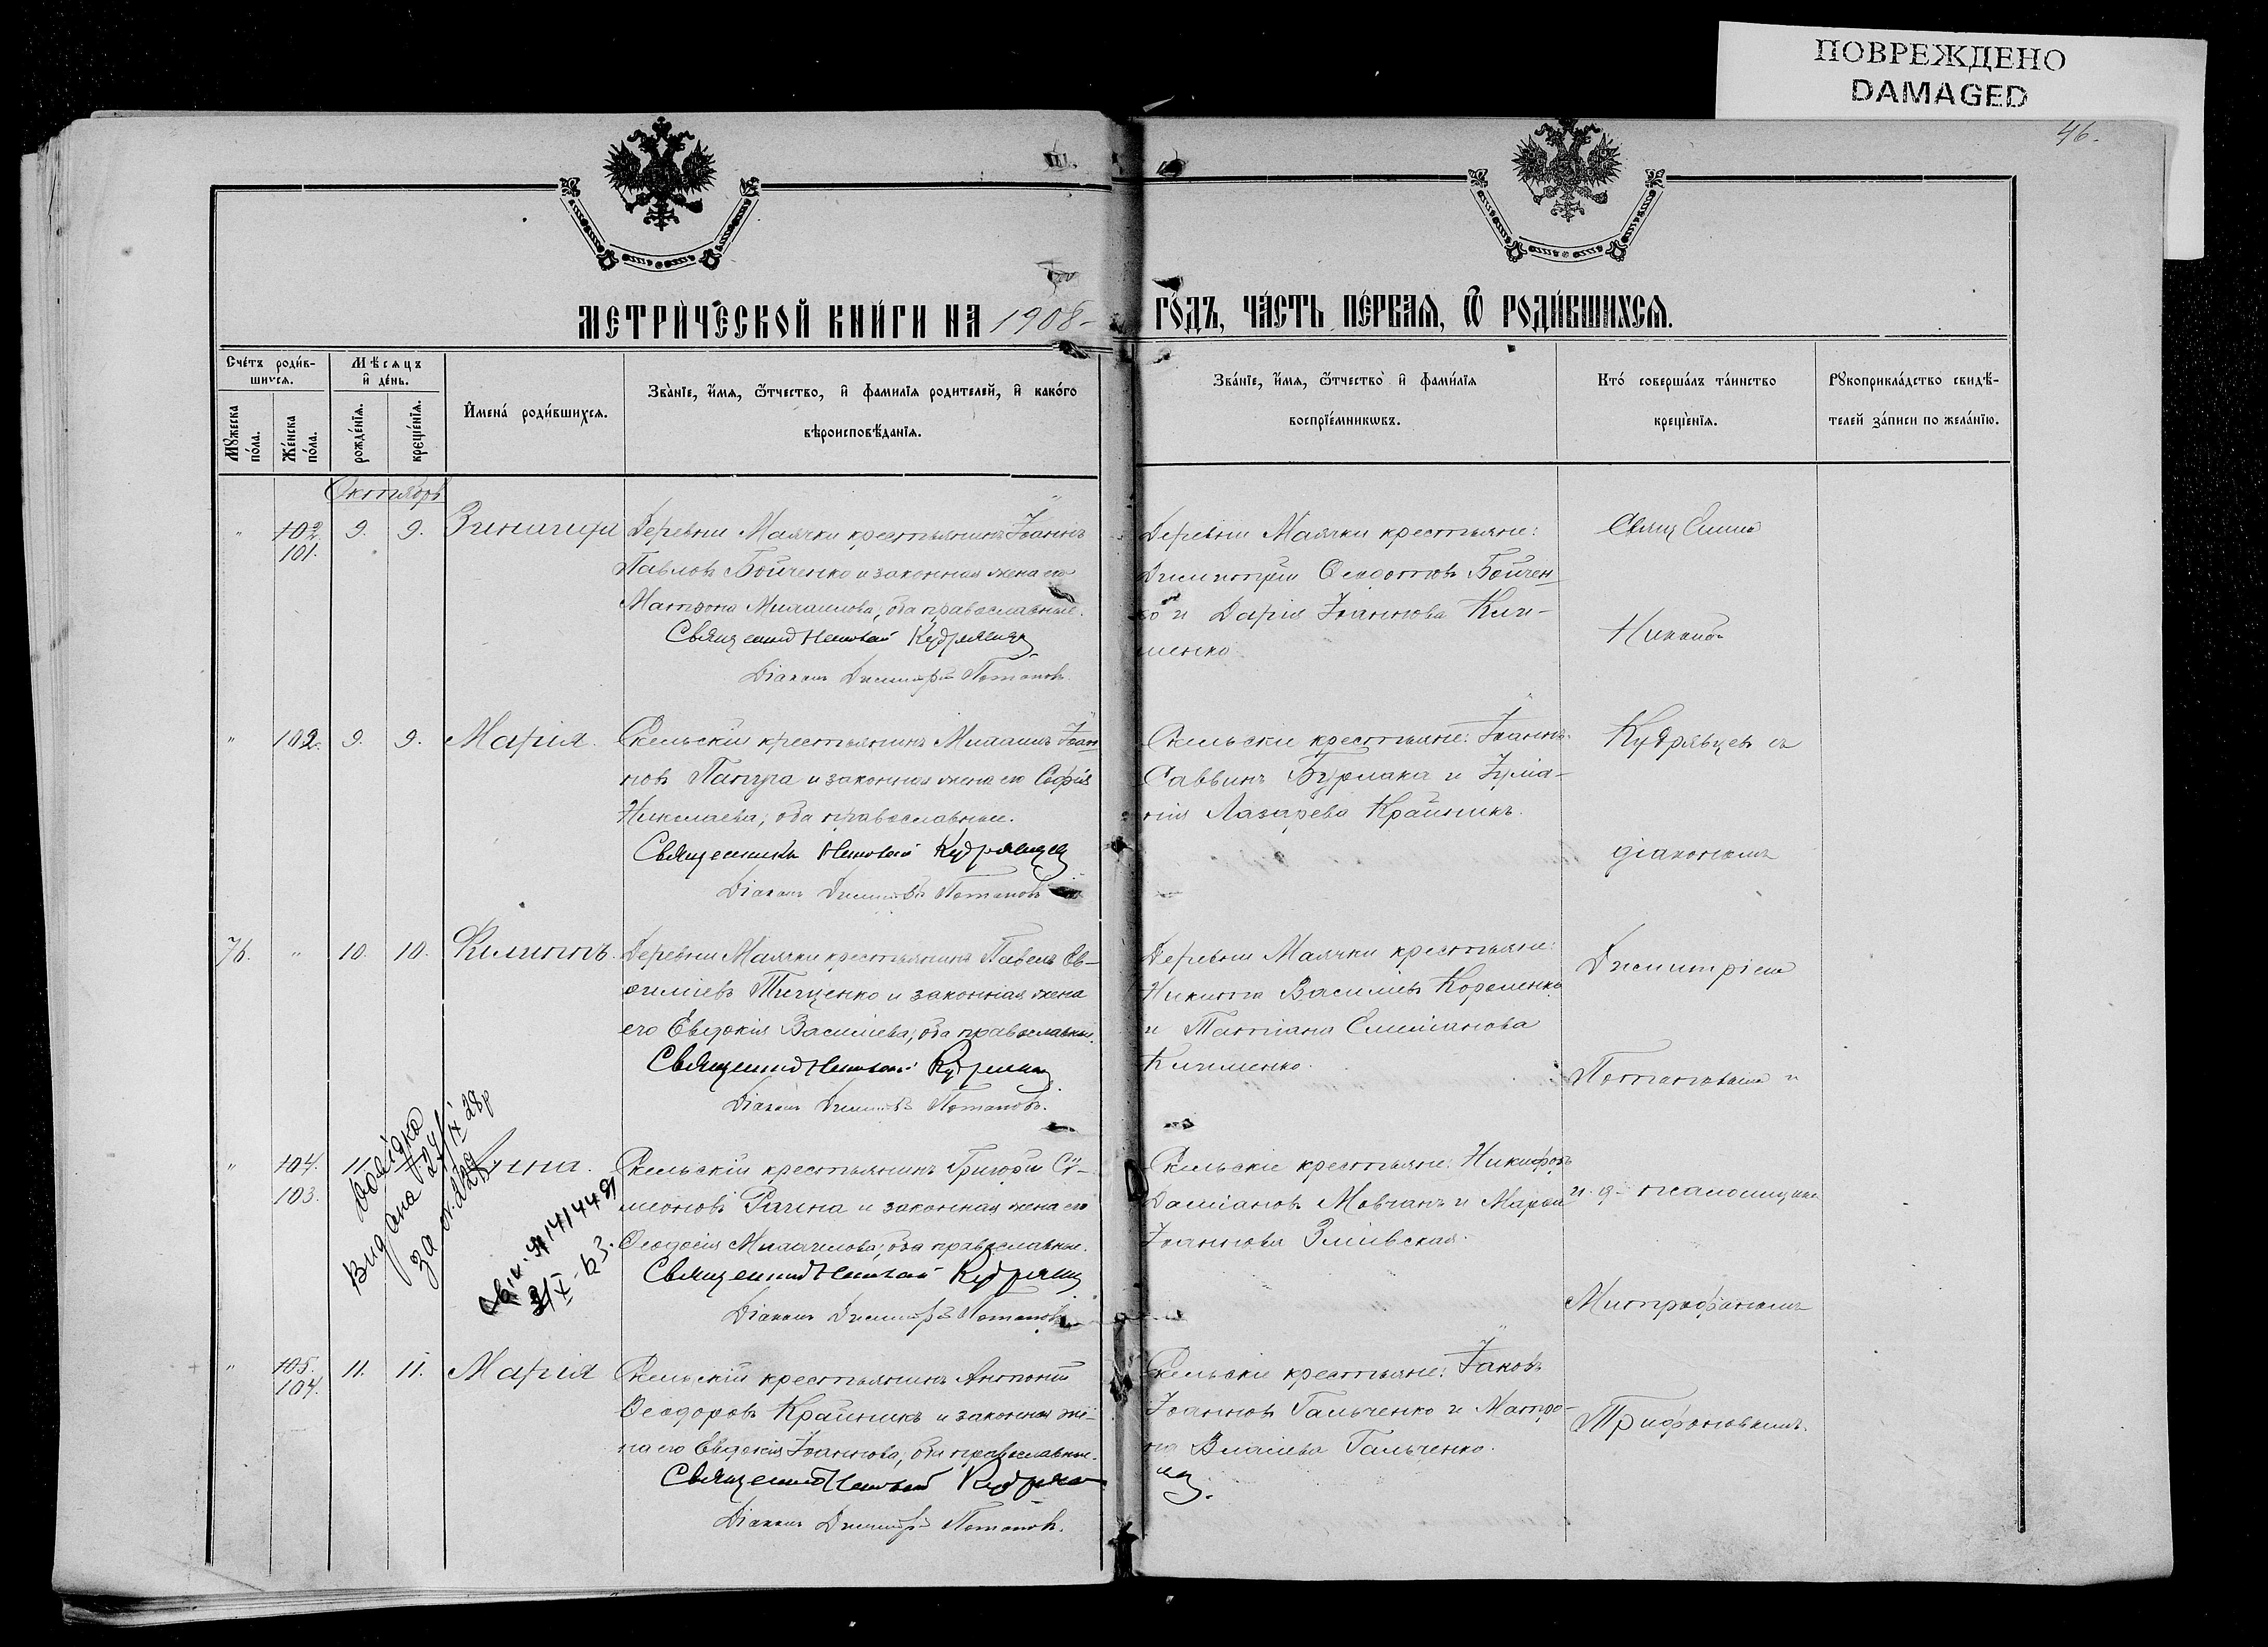 ПОВРЕЖДЕНО
DAMAGED
46.
МЕТРИ́ЧЕСКОЙ КНИ́ГИ НА 1908
ГО́ДЪ, ЧА́СТЬ ПЕ́РВАѦ, Ѿ РОДИ́ВШИХСѦ.
Сче́тъ роди́в-
шихсѧ.
Мѣсѧцъ
и҆ де́нь.
Мꙋжеска
по́ла.
Же́нска
по́ла.
рожде́нїѧ.
креще́нїѧ.
И҆мена́ роди́вшихсѧ.
Зва́нїе, и҆́мѧ, ѻ҆́тчество, и҆ фами́лїѧ роди́телей, и҆ како́го
вѣроисповѣ́данїѧ.
Зва́нїе, и҆́мѧ, ѻ҆́тчество и҆ фами́лїѧ
воспрїе́мникѡвъ.
Кто́ соверша́лъ та́инство
креще́нїѧ.
Рꙋкоприкла́дство свидѣ́-
телей за́писи по жела́нїю.
Октябрь
" 102. 101. 9. 9. Зинаида
Деревни Маячки крестьянинъ Іоаннъ
Павловъ Бойченко и законная жена его
Матрона Михаилова, оба православные.
Священник Николай Кудрявцев
Діаконъ Димитрій Потаповъ.
Деревни Маячки крестьяне:
Димитрій Ѳеодотовъ Бойчен
ко и Дарія Іоаннова Кли-
менко
Свящ
Николай
" 102. 9. 9. Марія.
Скельскій крестьянинъ Михаилъ Іоан
новъ Папуга и законная жена его Софія
Николаева; оба православные.
Священникъ Николай Кудрявцев
Діаконъ Димитрій Потаповъ
Скельскіе крестьяне: Іоаннъ
Саввинъ Бурлака и Іуліа-
нія Лазарева Крайникъ.
Кудрявцевъ съ
діакономъ
76. " 10. 10. Филиппъ.
Деревни Маячки крестьянинъ Павелъ Ев-
ѳиміевъ Тищенко и законная жена
его Евдокія Василіева; оба православные.
Священник Николай Кудрявцев
Діаконъ Димитрій Потаповъ.
Деревни Маячки крестьяне:
Никита Василіевъ Короленко
и Татіана
Клименко.
Димитріемъ
Потаповымъ и
" 104. 103. 11. 11. Анна.
Скельскій крестьянинъ Григорій Си-
меоновъ и законная жена его
Ѳеодосія Михаилова; оба православные.
Священник Николай Кудрявцев
Діаконъ Димитрій Потаповъ
Довідка
Видана
за
28р
Скельскіе крестьяне: Никифоръ
Даміановъ Мовчанъ и Марѳа
Іоаннова Зміевская.
и. д. псаломщика
Митрофаномъ
" 105. 104. 11. 11. Марія
Скельскій крестьянинъ Антоній
Ѳеодоровъ Крайникъ и законная же-
на его Евдокія Іоаннова, оба православные.
Священник Николай Кудряв
цев.
Діаконъ Димитрій Потаповъ.
Скельскіе крестьяне: Іаковъ
Іоанновъ Гальченко и Матро-
на Гальченко.
Трифоновскимъ.